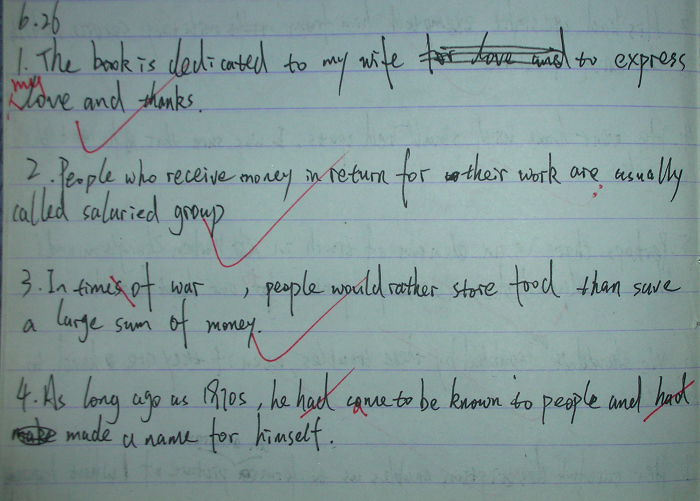 6.26
1. The book is dedicated to my wife for love and to express
my love and thanks.
2. People who receive money in return for their work are usually
called salaried group
3. In times of war , people would rather store food than save
a large sum of money.
4. As long ago as 1870s, he had came to be known to people and had
make made a name for himself.